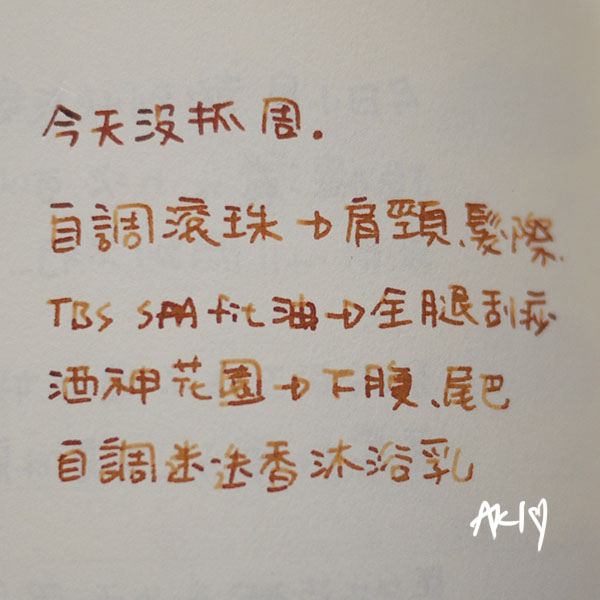 今天沒抓周.
自調滾珠→肩頸、髮際
TBS SPA fit油→全腿刮痧
酒神花園→下腹、尾巴
自調迷迭香沐浴乳
AKI♡